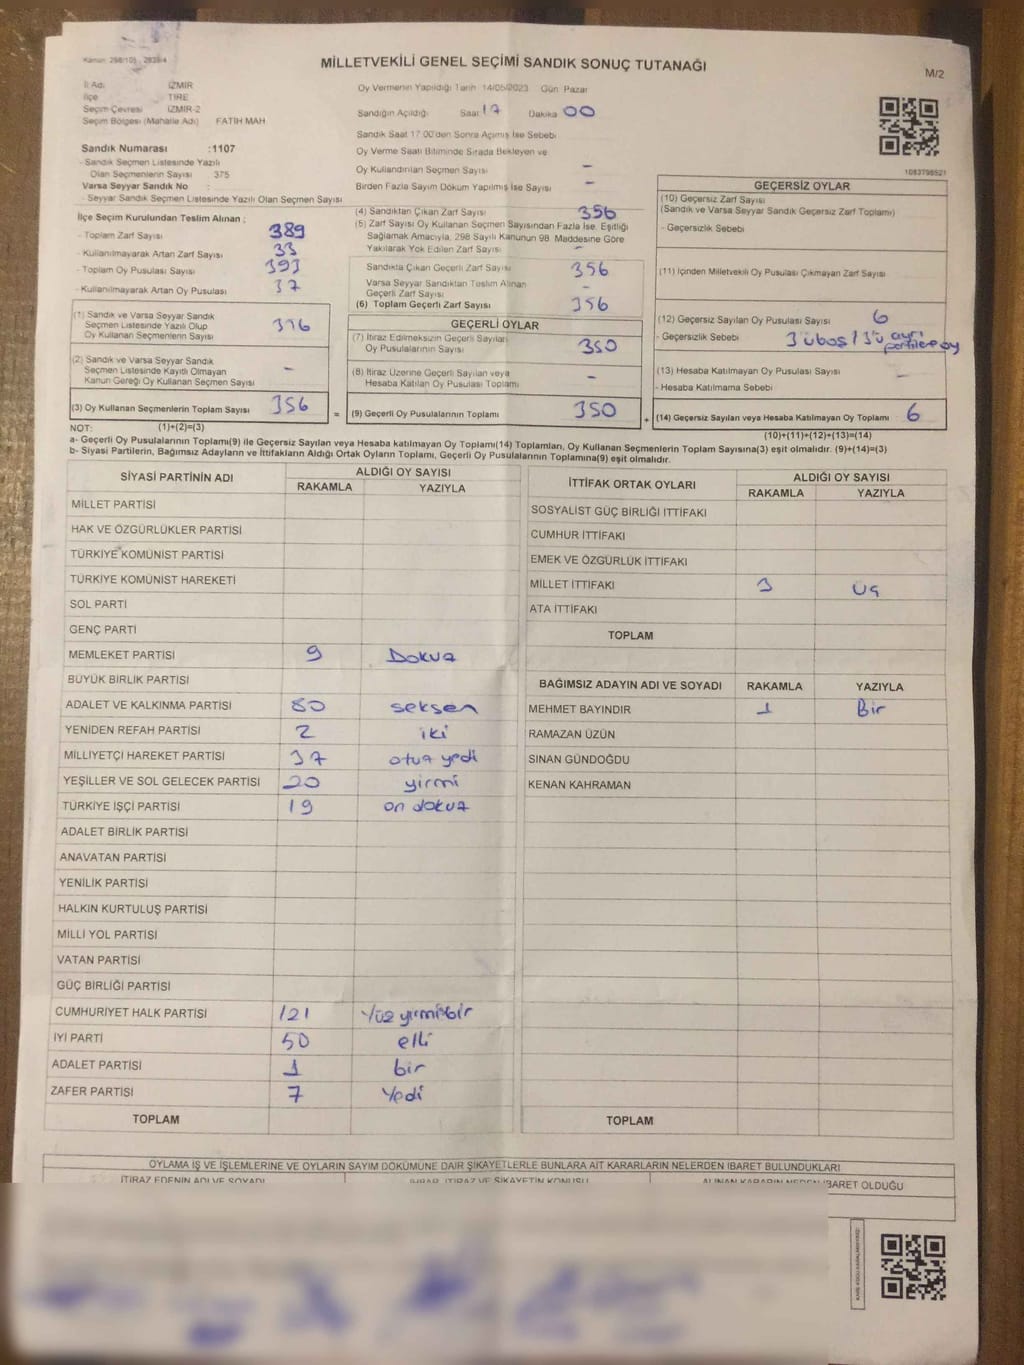 Kanun: 298/105 - 2839/4
MİLLETVEKİLİ GENEL SEÇİMİ SANDIK SONUÇ TUTANAĞI
M/2
İl Adı : İZMİR
İlçe : TİRE
Seçim Çevresi : İZMİR-2
Seçim Bölgesi (Mahalle Adı) : FATİH MAH
Sandık Numarası :1107
- Sandık Seçmen Listesinde Yazılı
Olan Seçmenlerin Sayısı : 375
Varsa Seyyar Sandık No :
- Seyyar Sandık Seçmen Listesinde Yazılı Olan Seçmen Sayısı
Oy Vermenin Yapıldığı Tarih 14/05/2023 Gün Pazar
Sandığın Açıldığı Saat 17 Dakika 00
Sandık Saat 17:00'den Sonra Açılmış İse Sebebi
Oy Verme Saati Bitiminde Sırada Bekleyen ve
Oy Kullandırılan Seçmen Sayısı –
Birden Fazla Sayım Döküm Yapılmış İse Sayısı –
1083798521
İlçe Seçim Kurulundan Teslim Alınan ;
- Toplam Zarf Sayısı 389
- Kullanılmayarak Artan Zarf Sayısı 33
- Toplam Oy Pusulası Sayısı 393
- Kullanılmayarak Artan Oy Pusulası 37
(1) Sandık ve Varsa Seyyar Sandık
Seçmen Listesinde Yazılı Olup
Oy Kullanan Seçmenlerin Sayısı
(2) Sandık ve Varsa Seyyar Sandık
Seçmen Listesinde Kayıtlı Olmayan
Kanun Gereği Oy Kullanan Seçmen Sayısı –
(3) Oy Kullanan Seçmenlerin Toplam Sayısı 356
(1)+(2)=(3)
(4) Sandıktan Çıkan Zarf Sayısı 356
(5) Zarf Sayısı Oy Kullanan Seçmen Sayısından Fazla İse, Eşitliği
Sağlamak Amacıyla, 298 Sayılı Kanunun 98. Maddesine Göre
Yakılarak Yok Edilen Zarf Sayısı –
Sandıkta Çıkan Geçerli Zarf Sayısı 356
Varsa Seyyar Sandıktan Teslim Alınan
Geçerli Zarf Sayısı –
(6) Toplam Geçerli Zarf Sayısı 356
GEÇERLİ OYLAR
(7) İtiraz Edilmeksizin Geçerli Sayılan
Oy Pusulalarının Sayısı 350
(8) İtiraz Üzerine Geçerli Sayılan veya
Hesaba Katılan Oy Pusulası Toplamı –
= (9) Geçerli Oy Pusulalarının Toplamı 350
GEÇERSİZ OYLAR
(10) Geçersiz Zarf Sayısı
(Sandık ve Varsa Seyyar Sandık Geçersiz Zarf Toplamı)
- Geçersizlik Sebebi
(11) İçinden Milletvekili Oy Pusulası Çıkmayan Zarf Sayısı
(12) Geçersiz Sayılan Oy Pusulası Sayısı 6
- Geçersizlik Sebebi 3 ü boş / 3 ü ayrı partilere oy
(13) Hesaba Katılmayan Oy Pusulası Sayısı –
- Hesaba Katılmama Sebebi
+ (14) Geçersiz Sayılan veya Hesaba Katılmayan Oy Toplamı 6
(10)+(11)+(12)+(13)=(14)
NOT:
a- Geçerli Oy Pusulalarının Toplamı(9) ile Geçersiz Sayılan veya Hesaba katılmayan Oy Toplamı(14) Toplamları, Oy Kullanan Seçmenlerin Toplam Sayısına(3) eşit olmalıdır. (9)+(14)=(3)
b- Siyasi Partilerin, Bağımsız Adayların ve İttifakların Aldığı Ortak Oyların Toplamı, Geçerli Oy Pusulalarının Toplamına(9) eşit olmalıdır.
SİYASİ PARTİNİN ADI
ALDIĞI OY SAYISI
RAKAMLA YAZIYLA
MİLLET PARTİSİ
HAK VE ÖZGÜRLÜKLER PARTİSİ
TÜRKİYE KOMÜNİST PARTİSİ
TÜRKİYE KOMÜNİST HAREKETİ
SOL PARTİ
GENÇ PARTİ
MEMLEKET PARTİSİ 9 Dokuz
BÜYÜK BİRLİK PARTİSİ
ADALET VE KALKINMA PARTİSİ 80 seksen
YENİDEN REFAH PARTİSİ 2 iki
MİLLİYETÇİ HAREKET PARTİSİ 37 otuz yedi
YEŞİLLER VE SOL GELECEK PARTİSİ 20 yirmi
TÜRKİYE İŞÇİ PARTİSİ 19 on dokuz
ADALET BİRLİK PARTİSİ
ANAVATAN PARTİSİ
YENİLİK PARTİSİ
HALKIN KURTULUŞ PARTİSİ
MİLLİ YOL PARTİSİ
VATAN PARTİSİ
GÜÇ BİRLİĞİ PARTİSİ
CUMHURİYET HALK PARTİSİ 121 Yüz yirmi bir
İYİ PARTİ 50 elli
ADALET PARTİSİ 1 bir
ZAFER PARTİSİ 7 Yedi
TOPLAM
İTTİFAK ORTAK OYLARI
ALDIĞI OY SAYISI
RAKAMLA YAZIYLA
SOSYALİST GÜÇ BİRLİĞİ İTTİFAKI
CUMHUR İTTİFAKI
EMEK VE ÖZGÜRLÜK İTTİFAKI
MİLLET İTTİFAKI 3 üç
ATA İTTİFAKI
TOPLAM
BAĞIMSIZ ADAYIN ADI VE SOYADI RAKAMLA YAZIYLA
MEHMET BAYINDIR 1 Bir
RAMAZAN ÜZÜN
SİNAN GÜNDOĞDU
KENAN KAHRAMAN
TOPLAM
OYLAMA İŞ VE İŞLEMLERİNE VE OYLARIN SAYIM DÖKÜMÜNE DAİR ŞİKAYETLERLE BUNLARA AİT KARARLARIN NELERDEN İBARET BULUNDUKLARI
İTİRAZ EDENİN ADI VE SOYADI
İHBAR, İTİRAZ VE ŞİKAYETİN KONUSU
ALINAN KARARIN NEDEN İBARET OLDUĞU